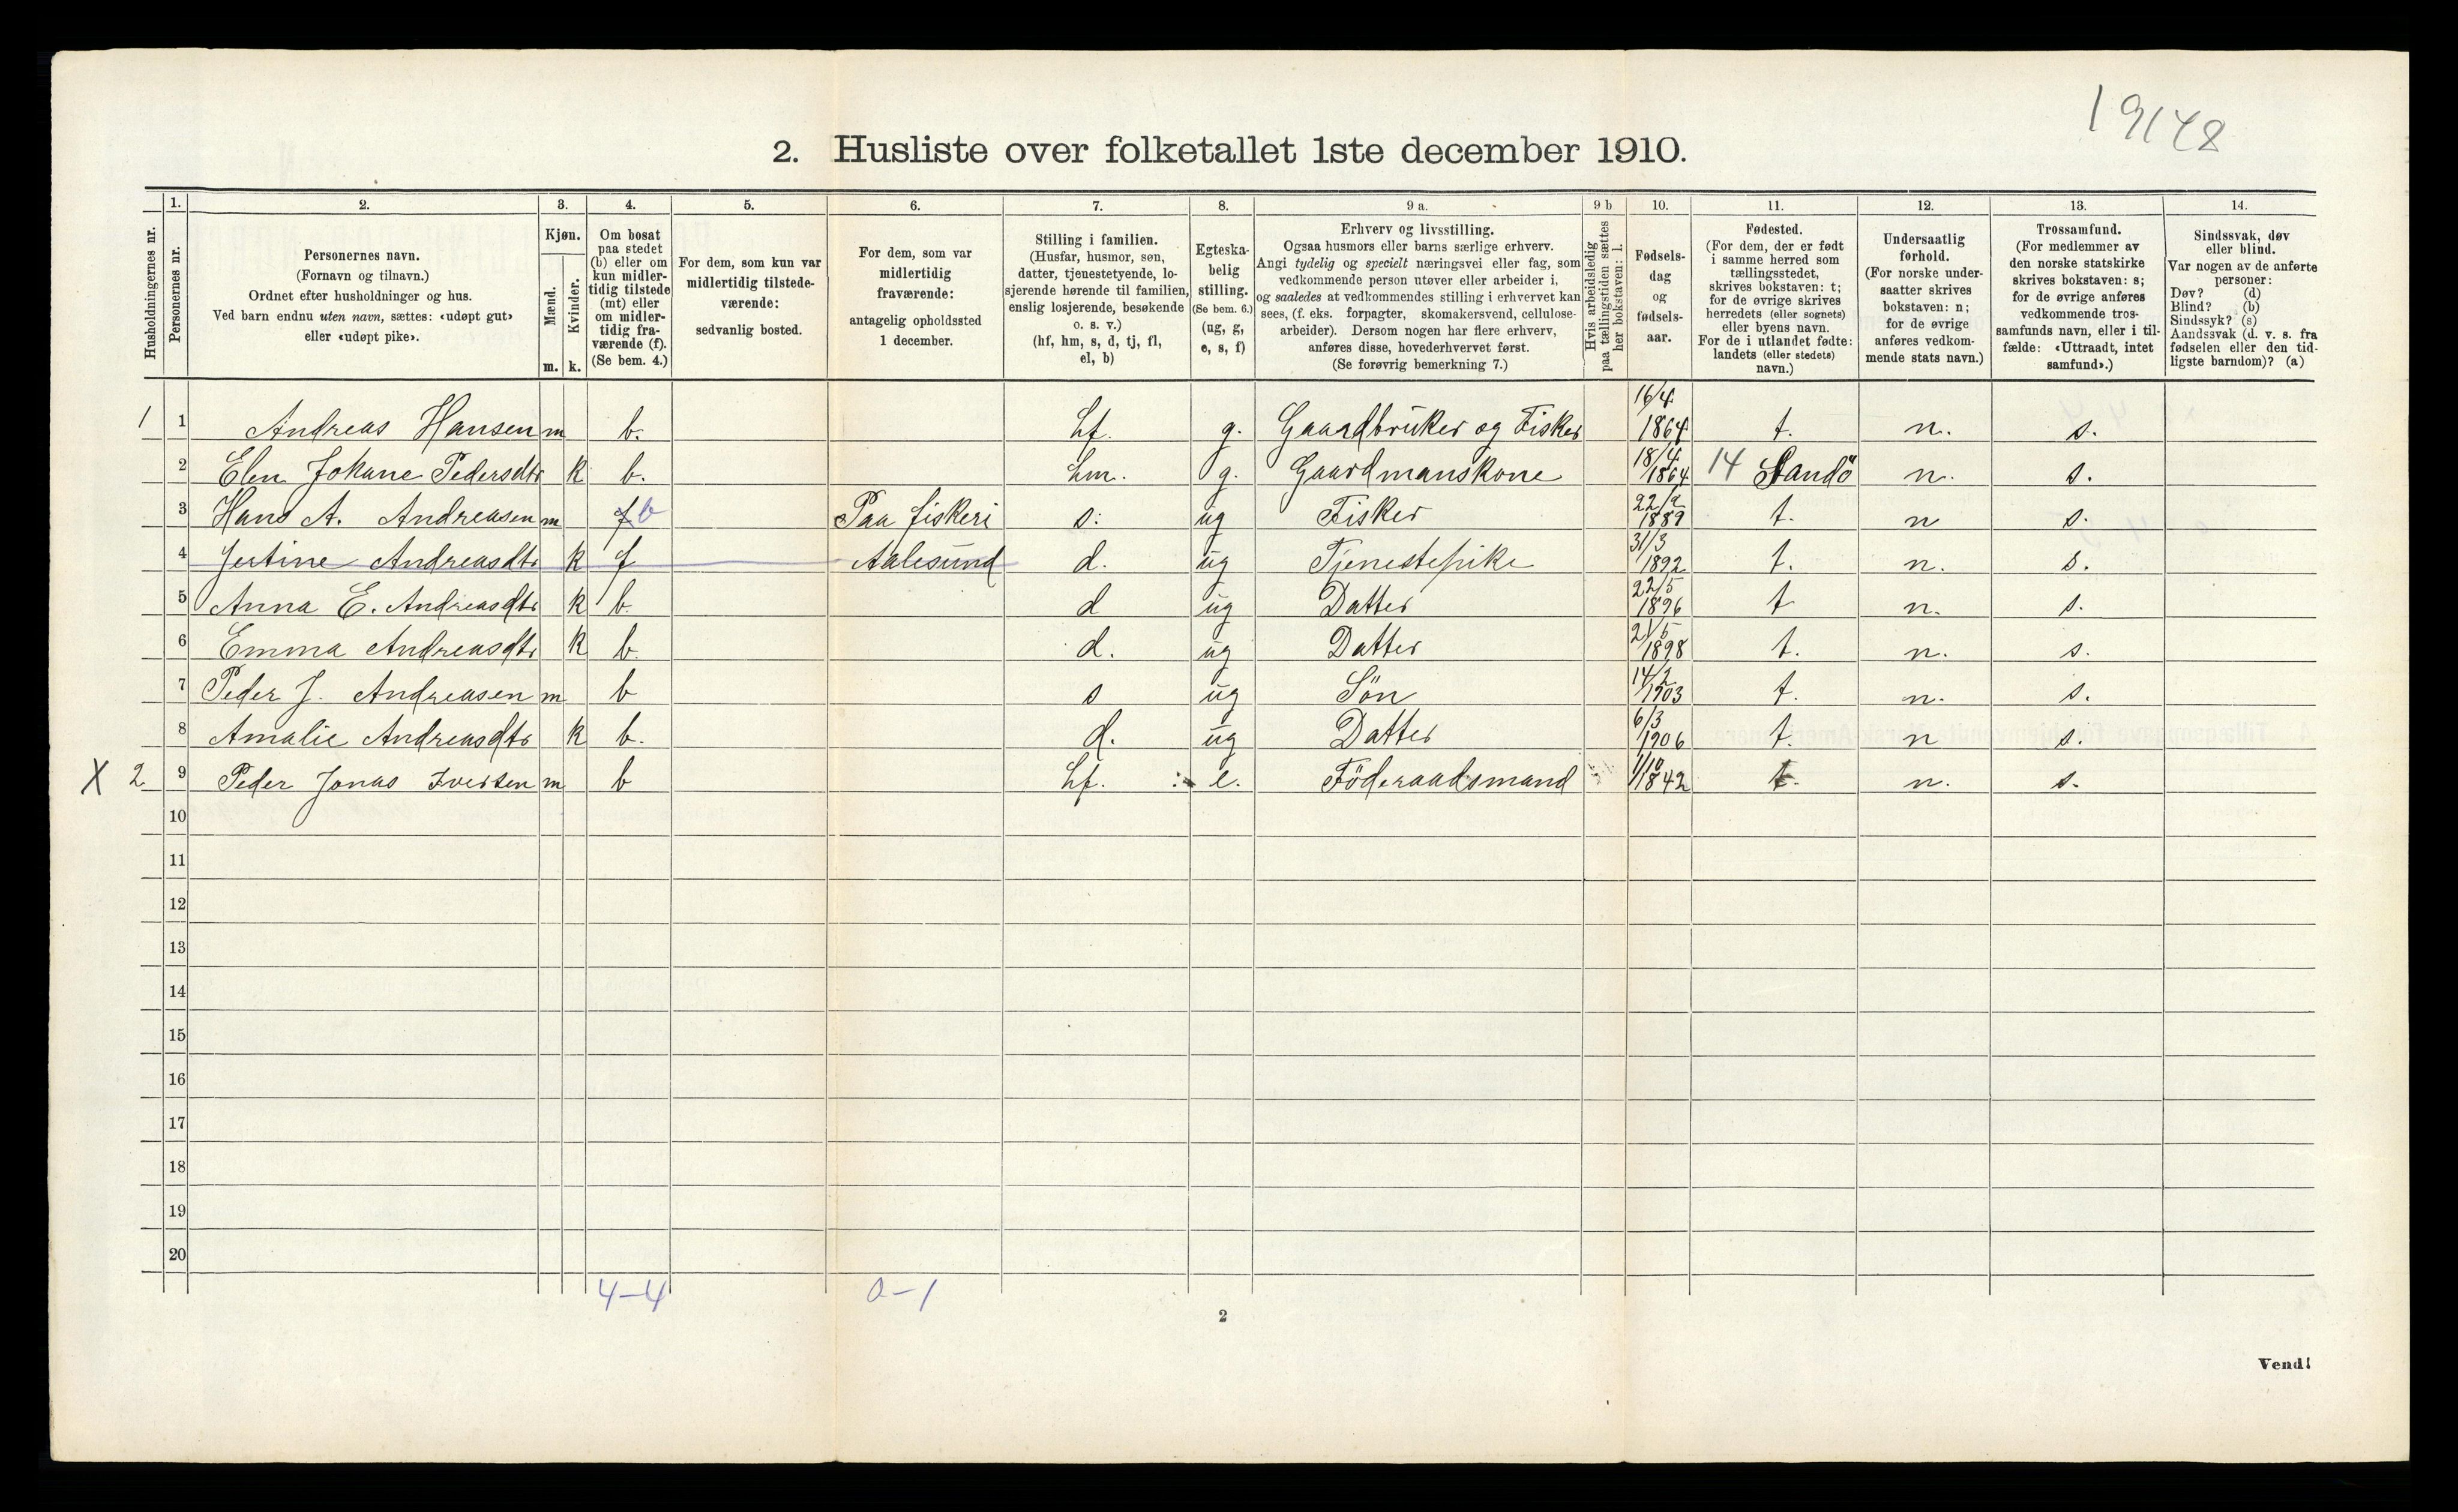 19148
2. Husliste over folketallet 1ste december 1910.
Husholdningernes nr.
1. Personernes nr.
2. Personernes navn.
(Fornavn og tilnavn.)
Ordnet efter husholdninger og hus.
Ved barn endnu uten navn, sættes: «udøpt gut»
eller «udøpt pike».
3. Kjøn.
Mænd. m.
Kvinder. k.
4. Om bosat
paa stedet
(b) eller om
kun midler-
tidig tilstede
(mt) eller
om midler-
tidig fra-
værende (f).
(Se bem. 4.)
5. For dem, som kun var
midlertidig tilstede-
værende:
sedvanlig bosted.
6. For dem, som var
midlertidig
fraværende:
antagelig opholdssted
1 december.
7. Stilling i familien.
(Husfar, husmor, søn,
datter, tjenestetyende, lo-
sjerende hørende til familien,
enslig losjerende, besøkende
o. s. v.)
(hf, hm, s, d, tj, fl,
el, b)
8. Egteska-
belig
stilling.
(Se bem. 6.)
(ug, g,
e, s, f)
9 a. Erhverv og livsstilling.
Ogsaa husmors eller barns særlige erhverv.
Angi tydelig og specielt næringsvei eller fag, som
vedkommende person utøver eller arbeider i,
og saaledes at vedkommendes stilling i erhvervet kan
sees, (f. eks. forpagter, skomakersvend, cellulose-
arbeider). Dersom nogen har flere erhverv,
anføres disse, hovederhvervet først.
(Se forøvrig bemerkning 7.)
9 b Hvis arbeidsledig
paa tællingstiden sættes
her bokstaven: l.
10. Fødsels-
dag
og
fødsels-
aar.
11. Fødested.
(For dem, der er født
i samme herred som
tællingsstedet,
skrives bokstaven: t;
for de øvrige skrives
herredets (eller sognets)
eller byens navn.
For de i utlandet fødte:
landets (eller stedets)
navn.)
12. Undersaatlig
forhold.
(For norske under-
saatter skrives
bokstaven: n;
for de øvrige
anføres vedkom-
mende stats navn.)
13. Trossamfund.
(For medlemmer av
den norske statskirke
skrives bokstaven: s;
for de øvrige anføres
vedkommende tros-
samfunds navn, eller i til-
fælde: «Uttraadt, intet
samfund».)
14. Sindssvak, døv
eller blind.
Var nogen av de anførte
personer:
Døv? (d)
Blind? (b)
Sindssyk? (s)
Aandssvak (d. v. s. fra
fødselen eller den tid-
ligste barndom)? (a)
1 1 Andreas Hansen m b. hf. g. Gaardbruker og Fisker 16/4 1864 t. n. s.
2 Elen Johane Pedersdtr k b. hm. g. Gaardmanskone 18/4 1864 14 Sandö n. s.
3 Hans A. Andreasen m f b Paa fiskeri s: ug Fisker 22/2 1889 t. n s.
4 Jertine Andreasdtr k f Aalesund d. ug Tjenestepike 31/3 1892 t. n. s.
5 Anna E. Andreasdtr k b. d ug Datter 22/5 1896 t n. s.
6 Emma Andreasdtr k b. d. ug Datter 21/5 1898 t. n. s.
7 Peder J. Andreasen m b s ug Sön 14/2 1903 t. n. s.
8 Amalie Andreasdtr k b. d. ug Datter 6/3 1906 t. n s.
X 2 9 Peder Jonas Iversen m b hf. e. Föderaadsmand 1/10 1842 t. n. s.
10
11
12
13
14
15
16
17
18
19
20
4-4 0-1
2
Vend!